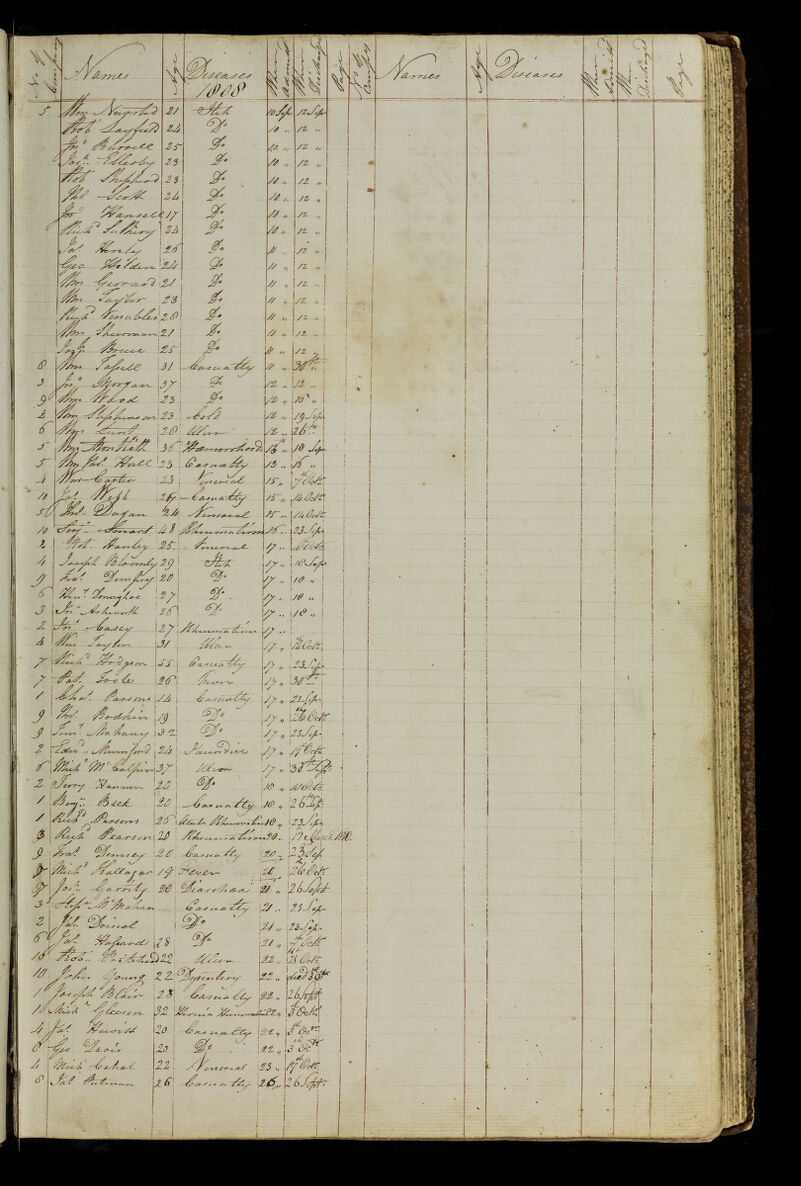 No of Company Names Age Diseases When admitd When Discharged Page No of Compy Names Age Diseases When admitd When Discharged Page
1808
5 Wm 21 Itch 10 Sep 12 Sep
Robt Layfield 24 Do 10 " 12 "
Jno Burrell 25 Do 10 " 12 "
Ellerby 23 Do 10 " 12 "
Robt Shepherd 23 Do 10 " 12 "
Thos Scott 24 Do 10 " 12 "
Jno Hansell 17 Do 10 " 12 "
Richd 24 Do 10 " 12 "
Jas 26 Do 11 " 12 "
Geo Holden 24 Do 11 " 12 "
Wm Gerrard 21 Do 11 " 12 "
Wm Taylor 23 Do 11 " 12 "
Venables 28 Do 11 " 12 "
Wm Sherman 21 Do 11 " 12 "
25 Do 11 " 12 "
8 Wm 31 Casualty 11 " 30th "
3 Jno Morgan 37 Do 12 " 12 "
9 Wm Wood 23 Do 12 " 15 "
2 Wm Stephenson 23 Cold 12 " 19 Sep
6 Wm Lunt 28 Ulcer 12 " 26th "
5 Wm Montieth 36 Hæmorrhoids 13 " 18 Sep
5 Hall 23 Casualty 13 " 15 "
4 Wm Carter 23 Venereal 15 " 7th Octr
10 Jas Webb 27 Casualty 15 " 14 Octr
5 Thos Dugan 24 Venereal 15 " 14 Octr
10 Serjt Smart 48 Rheumatism 16 " 23 Sep
2 Robt Hanley 25 Venereal 17 " Octr
4 Joseph Bloomly 29 Itch 17 " 18 Sep
9 Fras Dempsy 20 Do 17 " 18 "
6 Heny Donaghoe 27 Do 17 " 18 "
3 Jno Ashworth 26 Do 17 " 18 "
2 Jno Casey 27 Rheumatism 17 "
4 Wm Taylor 31 Ulcer 17 " Octr
7 Richd Hodgson 35 Casualty 17 " 23 Sep
7 Pat. Foote 26 Fever 17 " 30th
1 Chas Parsons 14 Casualty 17 " 23 Sep
9 19 Do 17 " 26 Octr
9 Timy Mahany 32 Do 17 " 23 Sep
2 Edwd Mumford 24 Jaundice 17 " 17 Octr
6 Michl McCalpin 37 Ulcer 17 " 30th Sept
2 Terry Hannon 20 Do 18 " 10 Octr
1 Benjn Beck 20 Casualty 18 " 26th Sept
1 Richd Parsons 26 Acute Rheumatism 18 " 23 Sep
3 Richd Pearson 20 Rheumatism 20 " 12 March 1810
9 Fras Demsey 20 Casualty 20 " 23 Sep
Michl Kallagar 19 Fever 21 " 26 Octr
9 Jas Garrity 20 Diarrhœa 21 " 26 Sept
3 Stepn McMahan Casualty 21 " 23 Sep
2 Jas Driscol Do 21 " 23 Sep
6 Jas Hassard 28 Do 21 " 7th Octr
10 Robt Pritchard 22 Ulcer 22 " 21 Octr
10 John Young 22 Dysentery 22 " died
1 Joseph Blair 28 Casualty 22 " 26 Sept
1 Michl Gleeson 32 Hernia Humoralis 22 " 3d Octr
4 Jas Hewitt 20 Casualty 22 " 3d Octr
8 Geo Davis 20 Do 22 " 3d Octr
4 Michl Cahal 22 Venereal 23 " 17th Octr
8 Jas Putman 26 Casualty 26 " 26 Sept